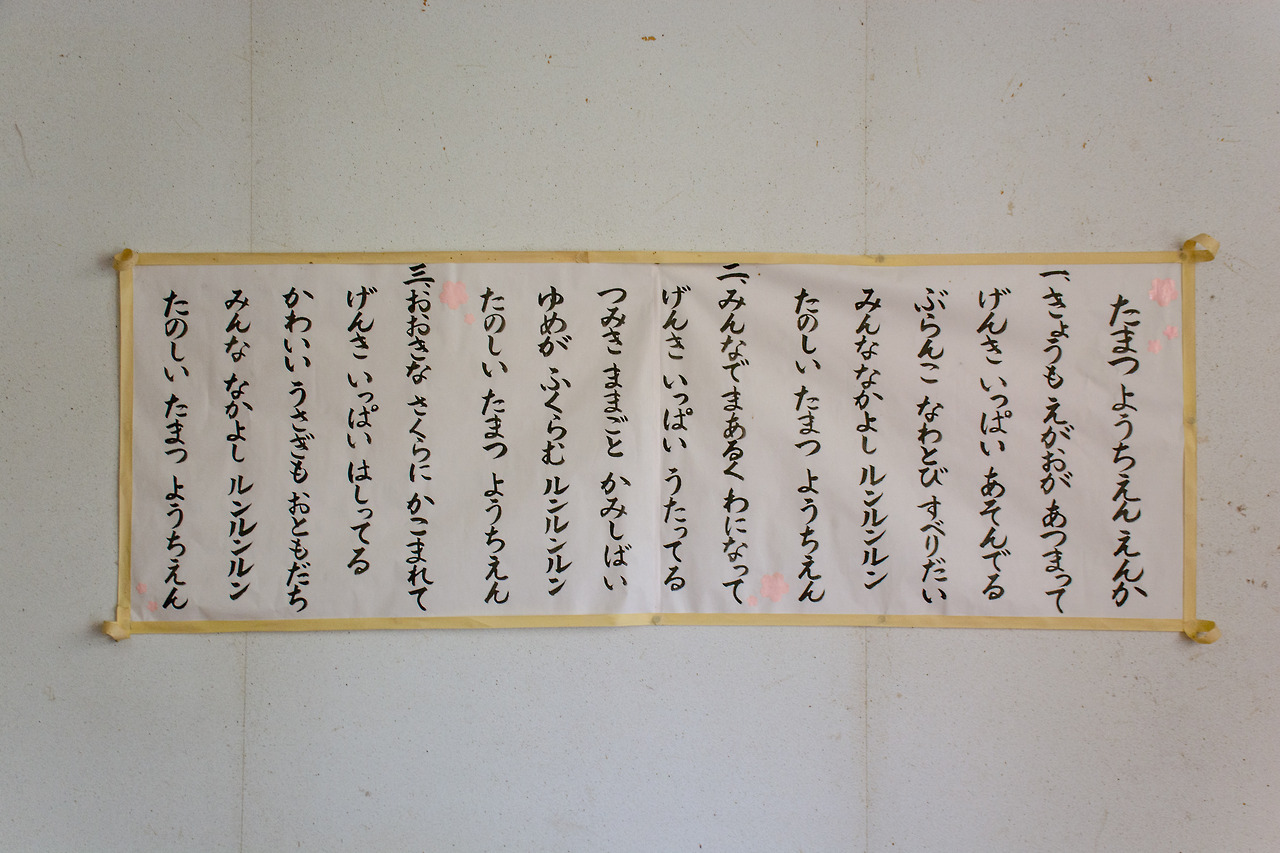 たまつ ようちえん えんか
一、きょうも えがおが あつまって
げんき いっぱい あそんでる
ぶらんこ なわとび すべりだい
みんななかよし ルンルンルン
たのしい たまつ ようちえん
二、みんなでまあるく わになって
げんき いっぱい うたってる
つみき ままごと かみしばい
ゆめが ふくらむ ルンルンルン
たのしい たまつ ようちえん
三、おおきな さくらに かこまれて
げんき いっぱい はしってる
かわいい うさぎも おともだち
みんな なかよし ルンルンルン
たのしい たまつ ようちえん